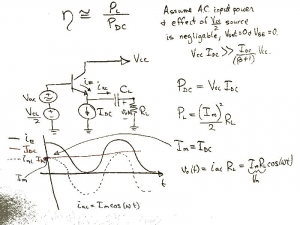 η ≅ P_L / P_DC
Assume A.C. input power
& effect of source
is negligable, Vout=0 @ VBE=0.
Vcc I_DC >> I_DC/(β+1) Vcc
Vcc
i_E
i_ac
C_L
Vac
Vcc/2
I_DC
R_L
P_DC = Vcc I_DC
P_L = (I_m/2)² R_L
I_m = I_DC
v_o(t) = i_ac R_L = I_m R_L cos(ωt)
V_m
i_E
I_DC
I_m
t
i_ac = I_m cos(ωt)